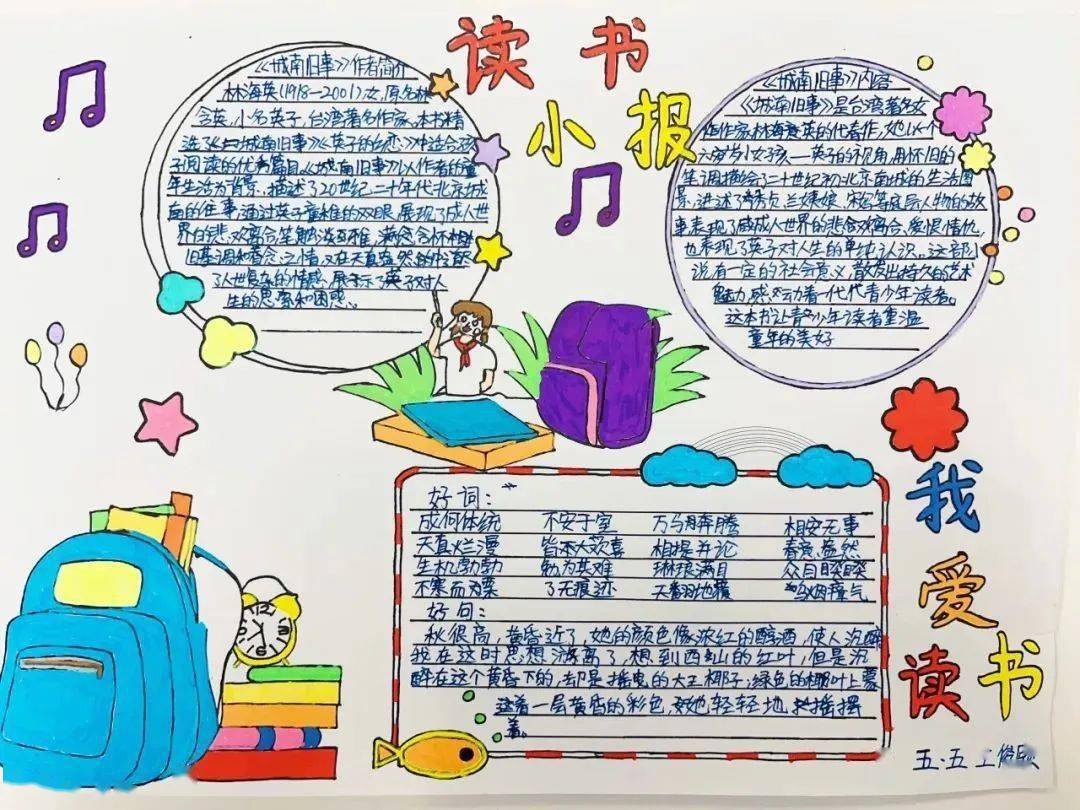 读书
小报
《城南旧事》作者简介
林海英(1918-2001)女,原名林
含英,小名英子,台湾著名作家、本书精
选了《城南旧事》《英子的乡恋》中适合孩
子阅读的优秀篇目《城南旧事》以作者的童
年生活为背景、描述了20世纪二十年代北京城
南的往事,通过英子童稚的双眼,展现了成人世
界的悲欢离合,笔触淡互雅,满含怀
旧基调和
了人世复杂的情感、展示了英子对人
生的思索和困惑。
《城南旧事》内容
《城南旧事》是台湾著名女
作作家林海英的代表作,她以个
六岁小女孩——英子的视角,用怀旧的
笔调描绘了二十世纪初北京南城的生活图
景,讲述了秀贞、兰姨娘、宋妈等底层人物的故
事表现了成人世界的悲合欢离合、爱恨情仇
也表现了英子对人生的单纯认识。这部小
说有一定的社会意义,散发出持久的艺术
魅力,感动着一代代青少年读者。
这本书让青少年读者重温
童年的美好
好词:
成何体统 不安于室 万马奔腾 相安无事
天真烂漫 皆大欢喜 相提并论 春意盎然
生机勃勃 勉为其难 琳琅满目 众目睽睽
不寒而栗 了无痕迹 天翻地覆 乌烟瘴气
好句:
秋很高,黄昏近了,她的颜色像浓红的醇酒,使人沉醉
我在这时思想游离了,想到西山的红叶,但是沉
醉在这个黄昏下的,却是摇曳的大王椰子;绿色的椰叶上蒙
这着一层黄昏的彩色,好她轻轻地摇摆
着。
我爱
读书
五·五